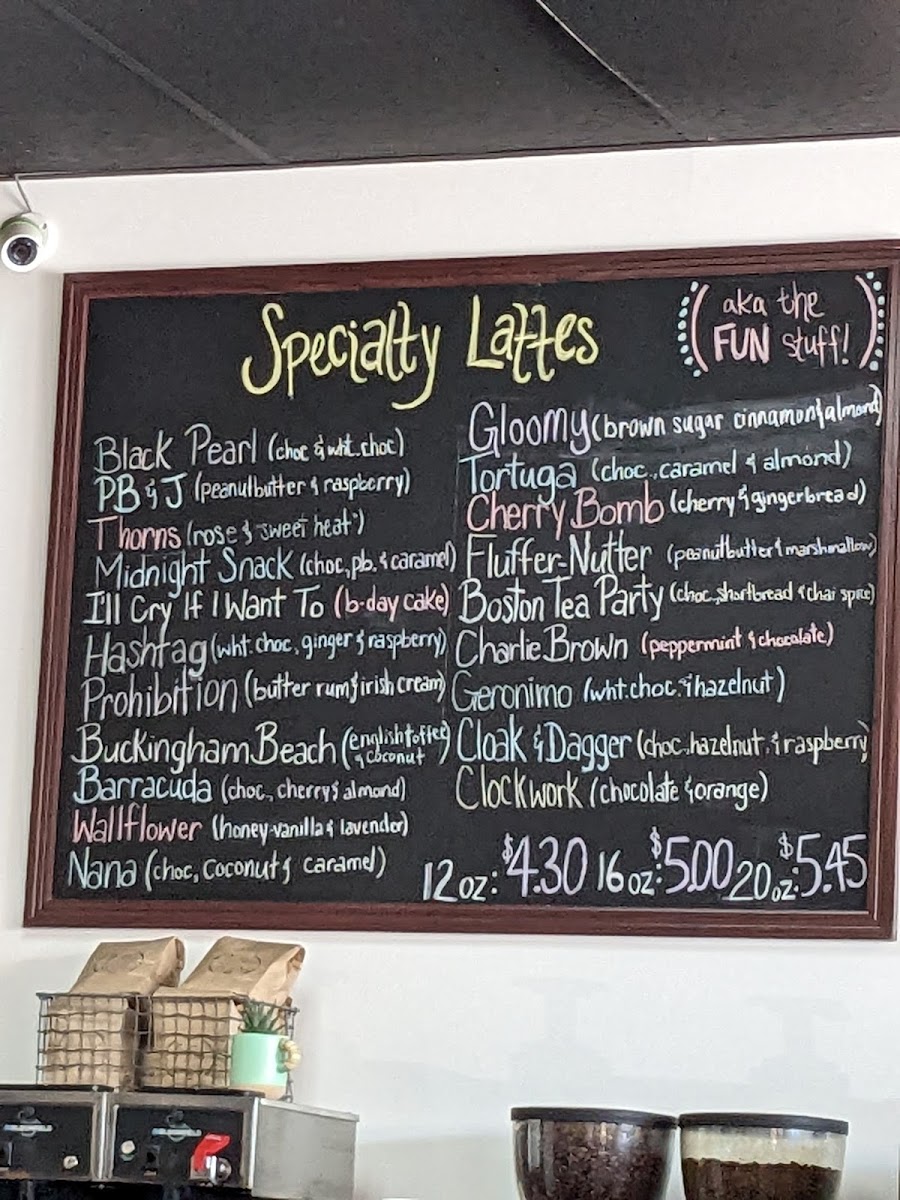 Specialty Lattes
(aka the
FUN stuff!)
Black Pearl (choc & wht. choc)
PB & J (peanutbutter & raspberry)
Thorns (rose & "sweet heat")
Midnight Snack (choc, pb. & caramel)
I'll Cry If I Want To (b-day cake)
Hashtag (wht. choc, ginger & raspberry)
Prohibition (butter rum & irish cream)
Buckingham Beach (english toffee
& coconut)
Barracuda (choc, cherry & almond)
Wallflower (honey vanilla & lavender)
Nana (choc, coconut & caramel)
Gloomy (brown sugar cinnamon & almond)
Tortuga (choc., caramel & almond)
Cherry Bomb (cherry & gingerbread)
Fluffer-Nutter (peanutbutter & marshmallow)
Boston Tea Party (choc., shortbread & chai spice)
Charlie Brown (peppermint & chocolate)
Geronimo (wht. choc. & hazelnut)
Cloak & Dagger (choc, hazelnut, & raspberry)
Clockwork (chocolate & orange)
12 oz: $4.30 16 oz: $5.00 20 oz: $5.45